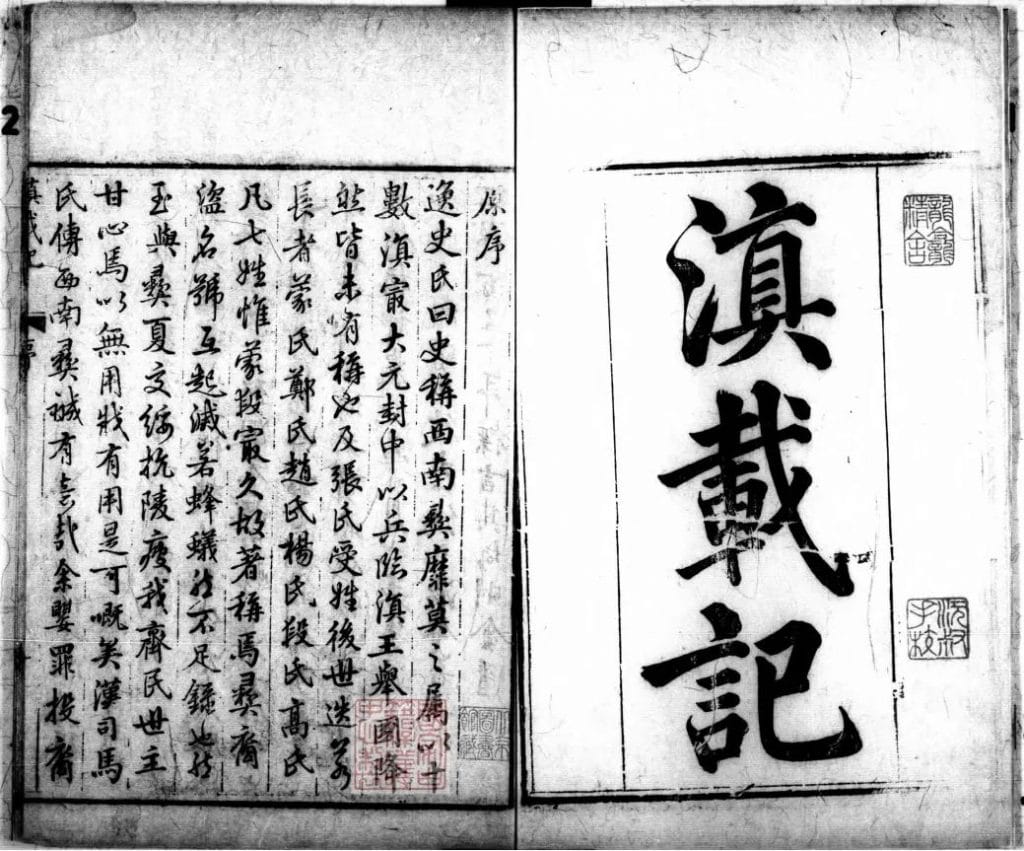 滇載記
龍龕精舍
沅叔手校
原序
逸史氏曰史稱西南彝靡莫之屬以十
數滇㝡大元封中以兵臨滇王舉國降
然皆未有稱也及張氏受姓後世迭為
長者蒙氏鄭氏趙氏楊氏段氏高氏
凡七姓惟蒙段㝡久故著稱焉彝裔
盜名號互起滅若蜂蟻然不足錄也然
至與彝夏交綏抗陵疲我齊民世主
甘心焉以無用戕有用是可嘅矣漢司馬
氏傳西南彝誠有旨哉余嬰罪投裔
滇載記
2